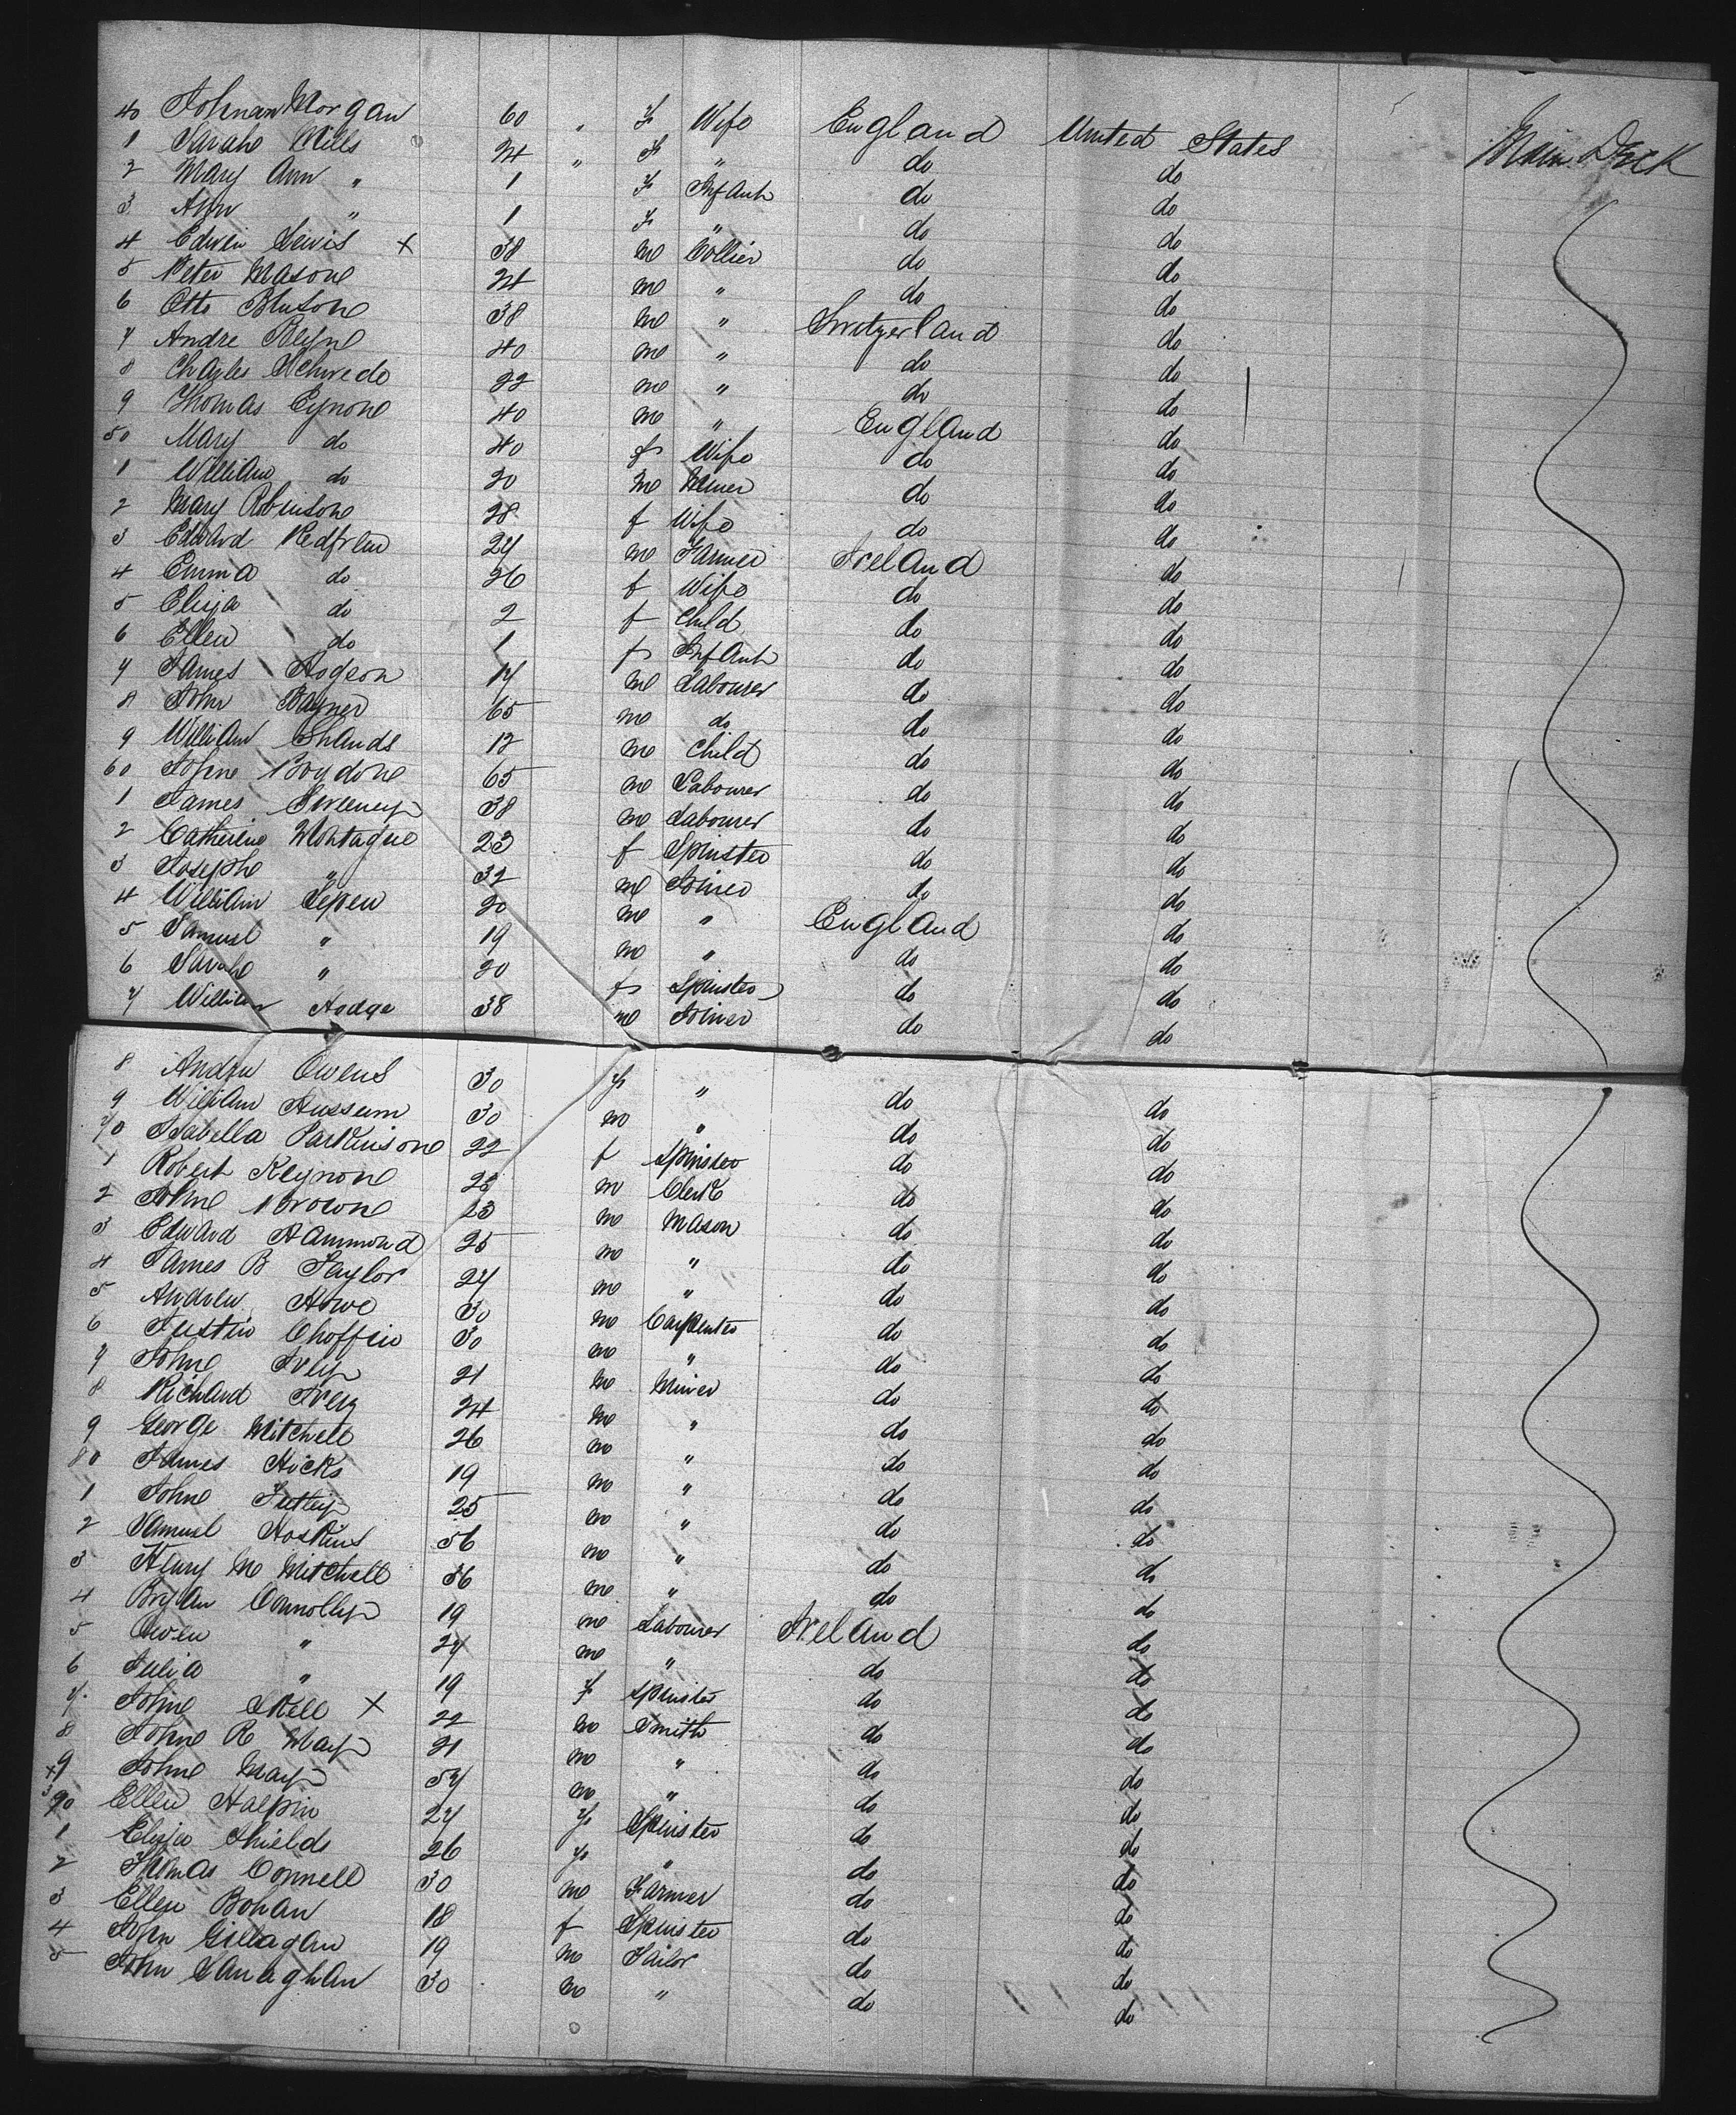 40 Johnan Morgan 60 " F Wife England United States Main Deck
1 Sarah Mills 24 " F " do do
2 Mary Ann " 1 F Infant do do
3 Ann " 1 F " do do
4 Edwin Lewis X 38 m Collier do do
5 Peter Mason 24 m " do do
6 Otto 38 m " Switzerland do
7 Andre 40 m " do do
8 Charles Schwede 22 m " do do
9 Thomas Eynon 40 m " England do
50 Mary do 40 f Wife do do
1 William do 20 m Miner do do
2 Mary Robinson 28 f Wife do do
3 Edward Redfren 27 m Farmer Ireland do
4 Emma do 26 f Wife do do
5 Eliza do 2 f Child do do
6 Ellen do 1 f Infant do do
7 James Hodgson 17 m Labourer do do
8 John Bayner 65 m do do do
9 William Shands 12 m Child do do
60 John Boydone 65 m Labourer do do
1 James Sweeney 38 m Labourer do do
2 Catherine Montague 23 f Spinster do do
3 Joseph " 32 m Joiner do do
4 William 20 m " England do
5 Samuel " 19 m " do do
6 Sarah " 20 f Spinster do do
7 William Hodge 38 m Joiner do do
8 Andru Owens 30 f " do do
9 William Hussum 30 m " do do
70 Isabella Parkinson 22 f Spinster do do
1 Robert Reynone 23 m Clerk do do
2 John Browne 23 m Mason do do
3 Edward Hammond 25 m " do do
4 James B Taylor 27 m " do do
5 Andrew Howe 30 m Carpenter do do
6 Justin Choffin 30 m " do do
7 John Ivey 21 m Miner do do
8 Richard Ivey 24 m " do do
9 George Mitchell 26 m " do do
80 James Hicks 19 m " do do
1 John 25 m " do do
2 Samuel Hoskins 56 m " do do
3 Henry M Mitchell 36 m " do do
4 Bryan Connolly 19 m Labourer Ireland do
5 Owen " 27 m " do do
6 Julia " 19 f Spinster do do
7 John Skell X 22 m Smith do do
8 John R May 21 m " do do
x9 John May 57 m " do do
390 Ellen Halpin 27 f Spinster do do
1 Eliza Shields 26 f " do do
2 Thomas Connell 30 m Farmer do do
3 Ellen Bohan 18 f Spinster do do
4 John Gillagan 19 m Tailor do do
5 John Lanaghan 30 m " do do